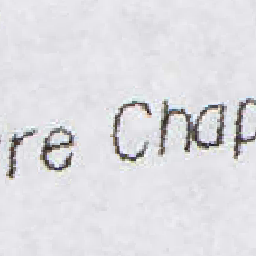 re Chap